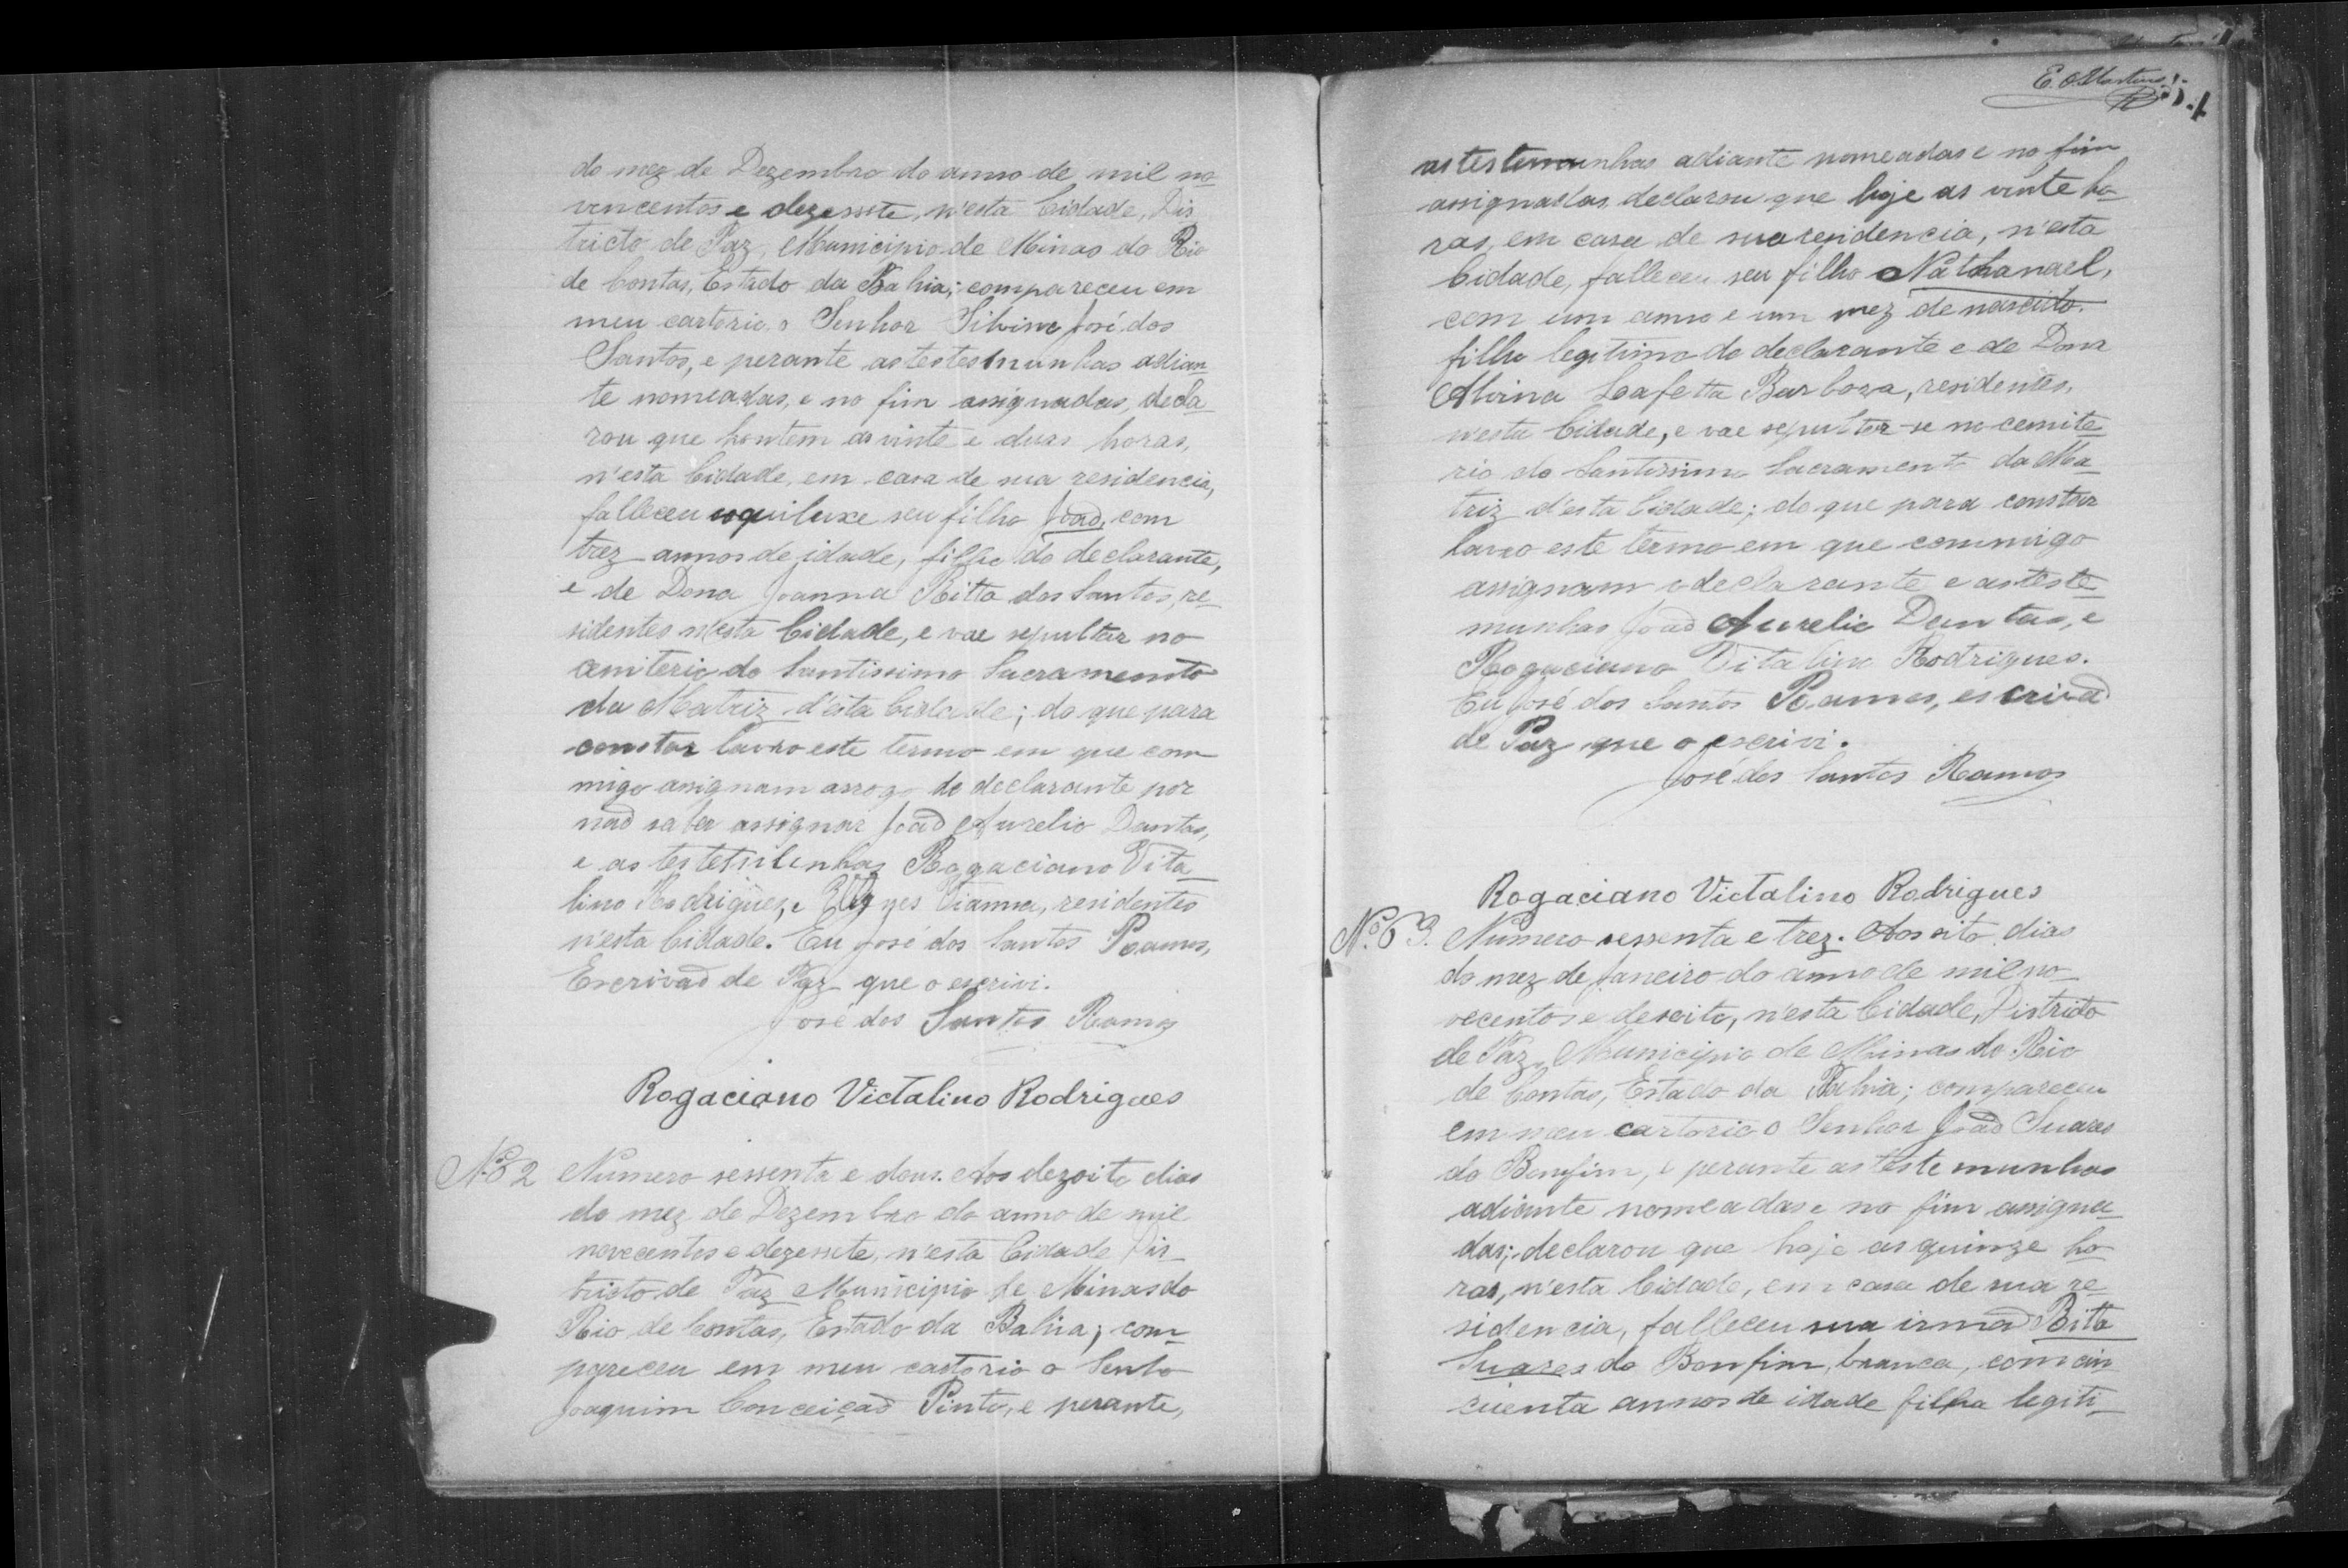 do mez de Dezembro do anno de mil no-
vencentos e dezessete, n'esta Cidade, Dis
tricto de Paz, Municipio de Minas do Rio
de Contas, Estado da Bahia; compareceu em
meu cartorio o Senhor Silvino José dos
Santos, e perante as testesmunhas adian-
te nomeadas, e no fim assignadas, decla-
rou que hontem as vinte e duas horas,
n'esta Cidade, em casa de sua residencia,
falleceu seu filho João, com
trez annos de idade, filho do declarante,
e de Dona Joanna Ritta dos Santos, re-
sidentes n'esta Cidade, e vae sepultar no
cemiterio do Santissimo Sacramento
da Matriz d'esta Cidade; do que para
constar lavro este termo em que com
migo assignam arrogo do declarante por
não saber assignar João Aurelio Dantas,
e as testemunhas Rogaciano Vita-
lino Rodrigues, e Vianna, residentes
n'esta Cidade. Eu José dos Santos Ramos,
Escrivão de Paz que o escrivi.
José dos Santos Ramos
Rogaciano Victalino Rodrigues
Nº 62 Numero sessenta e dous. Aos dezoito dias
do mez de Dezembro do anno de mil
novecentos e dezessete, n'esta Cidade Dis-
tricto de Paz Municipio de Minas do
Rio de Contas, Estado da Bahia; com-
pareceu em meu cartorio o Senho
Joaquim Conceição Pinto, e perante,
E. O. Martins
as testemunhas adiante nomeadas e no fim
assignadas, declarou que hoje as vinte ho-
ras, em casa de sua residencia, n'esta
Cidade, falleceu seu filho Nathanael,
com um anno e um mez de nascido.
filho legitimo do declarante e de Dona
Alvina Lafetta Barboza, residentes,
n'esta Cidade, e vae sepultar-se no cemite-
rio do Santissimo Sacramento da Ma-
triz d'esta Cidade; do que para constar
lavro este termo em que commigo
assignam o declarante e as teste-
munhas João Aurelio Dantas, e
Rogaciano Vitalino Rodrigues.
Eu José dos Santos Ramos, escrivão
de Paz que o escrivi.
José dos Santos Ramos
Rogaciano Victalino Rodrigues
Nº 63. Numero sessenta e trez. Aos oito dias
do mez de Janeiro do anno de mil no-
vecentos e desoito, n'esta Cidade, Distrito
de Paz, Municipio de Minas do Rio
de Contas, Estado da Bahia; compareceu
em meu cartorio o Senhor João Suares
do Bomfim, e perante as testemunhas
adiante nomeadas e no fim assigna-
das; declarou que hoje as quinze ho-
ras, n'esta Cidade, em casa de sua re-
sidencia, falleceu sua irmão Rita
Suares do Bonfim, branca, com cin
cuenta annos de idade filha legiti-